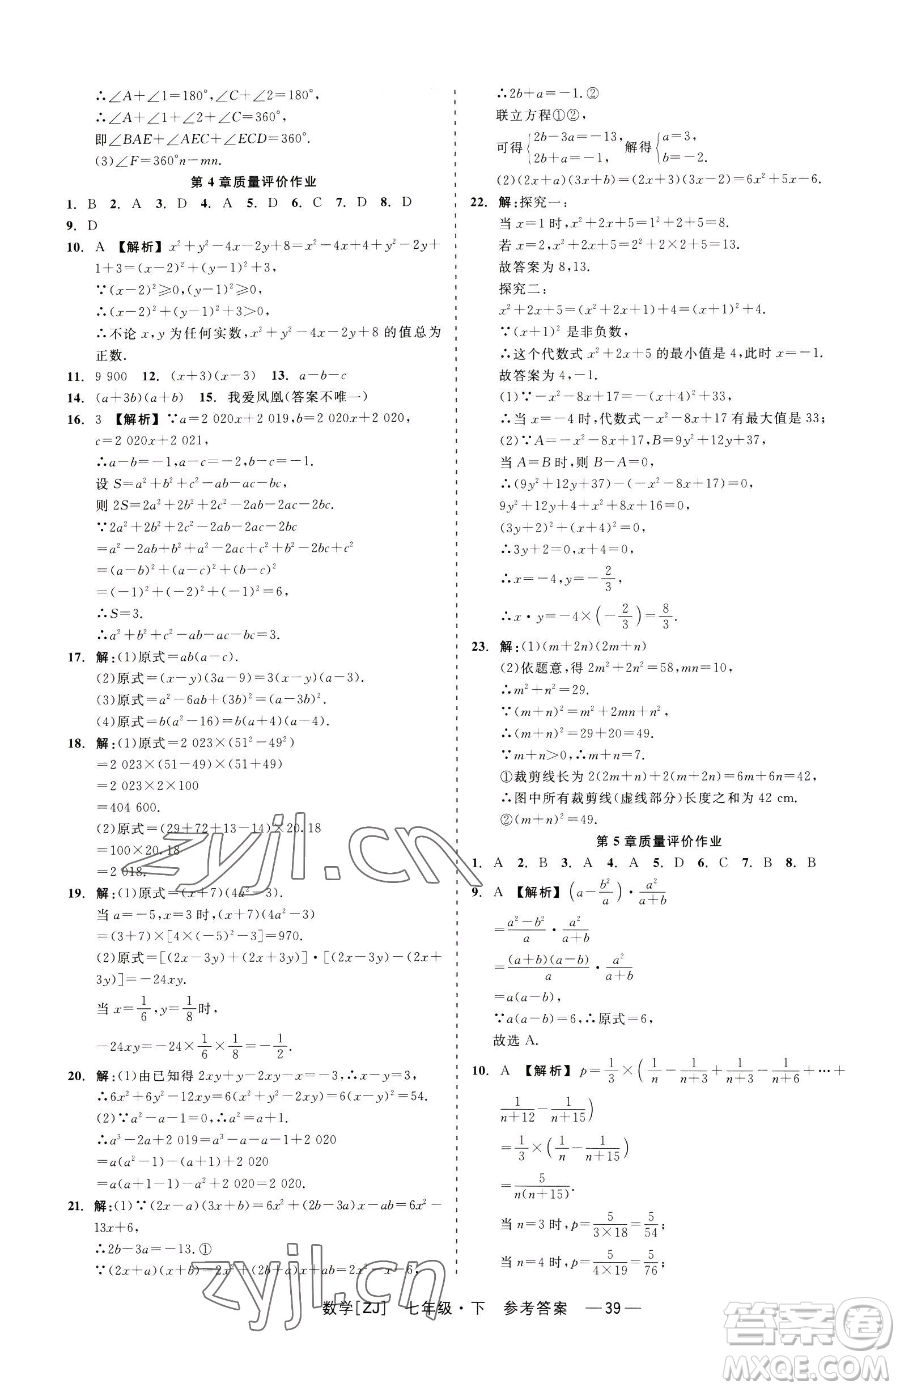 ∴∠A+∠1=180°,∠C+∠2=180°,
∴∠A+∠1+∠2+∠C=360°,
即∠BAE+∠AEC+∠ECD=360°.
(3)∠F=360°n-mn.
第4章质量评价作业
1. B 2. A 3. D 4. A 5. D 6. C 7. D 8. D
9. D
10. A 【解析】x²+y²-4x-2y+8=x²-4x+4+y²-2y+
1+3=(x-2)²+(y-1)²+3,
∵(x-2)²≥0,(y-1)²≥0,
∴(x-2)²+(y-1)²+3>0,
∴不论x,y为任何实数,x²+y²-4x-2y+8的值总为
正数.
11. 9 900 12. (x+3)(x-3) 13. a-b-c
14. (a+3b)(a+b) 15. 我爱凤凰(答案不唯一)
16. 3 【解析】∵a=2 020x+2 019,b=2 020x+2 020,
c=2 020x+2 021,
∴a-b=-1,a-c=-2,b-c=-1.
设S=a²+b²+c²-ab-ac-bc,
则2S=2a²+2b²+2c²-2ab-2ac-2bc.
∵2a²+2b²+2c²-2ab-2ac-2bc
=a²-2ab+b²+a²-2ac+c²+b²-2bc+c²
=(a-b)²+(a-c)²+(b-c)²
=(-1)²+(-2)²+(-1)²=6,
∴S=3.
∴a²+b²+c²-ab-ac-bc=3.
17. 解:(1)原式=ab(a-c).
(2)原式=(x-y)(3a-9)=3(x-y)(a-3).
(3)原式=a²-6ab+(3b)²=(a-3b)².
(4)原式=b(a²-16)=b(a+4)(a-4).
18. 解:(1)原式=2 023×(51²-49²)
=2 023×(51-49)×(51+49)
=2 023×2×100
=404 600.
(2)原式=(29+72+13-14)×20.18
=100×20.18
=2 018.
19. 解:(1)原式=(x+7)(4a²-3).
当a=-5,x=3时,(x+7)(4a²-3)
=(3+7)×[4×(-5)²-3]=970.
(2)原式=[(2x-3y)+(2x+3y)]·[(2x-3y)-(2x+
3y)]=-24xy.
当x=1/6,y=1/8时,
-24xy=-24×1/6×1/8=-1/2.
20. 解:(1)由已知得2xy+y-2xy-x=-3,∴x-y=3,
∴6x²+6y²-12xy=6(x²+y²-2xy)=6(x-y)²=54.
(2)∵a²-a-1=0,∴a²-a=1,
∴a³-2a+2 019=a³-a²+a²-2a+1+2 020
=a(a²-a)+(a-1)²+2 020
=a+(a-1)²+2 020=a²-a+1+2 020
=a(a+1-1)-a+1+2 020=2 022.
21. 解:(1)∵(2x-a)(3x+b)=6x²+(2b-3a)x-ab=6x²-
13x+6,
∴2b-3a=-13.①
∵(2x+a)(x+b)=2x²+(2b+a)x+ab=2x²-x-6,
∴2b+a=-1.②
联立方程①②
可得{2b-3a=-13, 2b+a=-1, 解得{a=3, b=-2.
(2)(2x+a)(3x+b)=(2x+3)(3x-2)=6x²+5x-6.
22. 解:探究一:
当x=1时,x²+2x+5=1+2+5=8.
若x=2,x²+2x+5=2²+2×2+5=13.
故答案为8,13.
探究二:
x²+2x+5=(x²+2x+1)+4=(x+1)²+4.
∵(x+1)²是非负数,
∴这个代数式x²+2x+5的最小值是4,此时x=-1.
故答案为4,-1.
(1)∵-x²-8x+17=-(x+4)²+33,
∴当x=-4时,代数式-x²-8x+17有最大值33;
(2)∵A=-x²-8x+17,B=9y²+12y+37,
当A=B时,则B-A=0,
∴(9y²+12y+37)-(-x²-8x+17)=0,
9y²+12y+4+x²+8x+16=0,
(3y+2)²+(x+4)²=0,
∴3y+2=0,x+4=0,
∴x=-4,y=-2/3,
∴x·y=-4×(-2/3)=8/3.
23. 解:(1)(m+2n)(2m+n)
(2)依题意,得2m²+2n²=58,mn=10,
∴m²+n²=29.
∵(m+n)²=m²+2mn+n²,
∴(m+n)²=29+20=49.
∵m+n>0,∴m+n=7.
①裁剪线长为2(2m+n)+2(m+2n)=6m+6n=42.
∴图中所有裁剪线(虚线部分)长度之和为42 cm.
②(m-n)²=m²-2mn+n²=29-20=9.
第5章质量评价作业
1. A 2. B 3. A 4. A 5. D 6. C 7. B 8. B
9. A 【解析】(a-b²/a)·a²/(a+b)
=(a²-b²)/a·a²/(a+b)
=(a+b)(a-b)/a·a²/(a+b)
=a(a-b),
∵a(a-b)=6,∴原式=6.
故选A.
10. A 【解析】p=1/3×(1/n-1/(n+3)+1/(n+3)-1/(n+6)+…+
1/(n+12)-1/(n+15))
=1/3×(1/n-1/(n+15))
=5/(n(n+15)).
当n=3时,p=5/(3×18)=5/54;
当n=4时,p=5/(4×19)=5/76;
数学[ZJ] 七年级·下 参考答案 —39—
zyjl.cn
答案圈
MXQE.COM